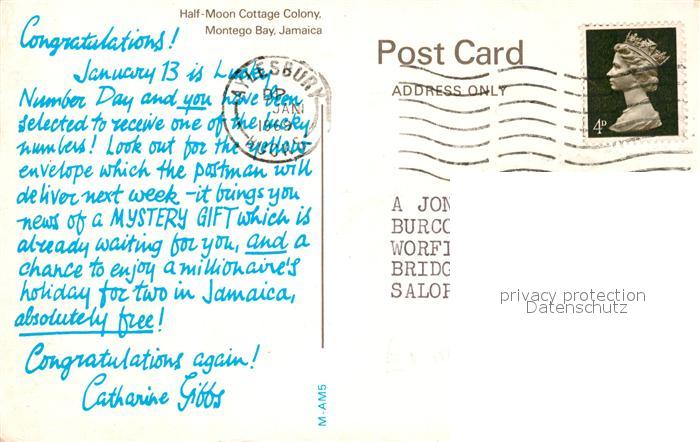 Half-Moon Cottage Colony,
Montego Bay, Jamaica
Congratulations!
January 13 is Lucky
Number Day and you have been
selected to receive one of the lucky
numbers! Look out for the yellow
envelope which the postman will
deliver next week - it brings you
news of a MYSTERY GIFT which is
already waiting for you, and a
chance to enjoy a millionaire's
holiday for two in Jamaica,
absolutely free!
Congratulations again!
Catharine Gibbs
M-AM5
AYLESBURY
JAN
1969
BUCKS
Post Card
ADDRESS ONLY
4P
A JON
BURCO
WORFI
BRIDG
SALOP
privacy protection
Datenschutz